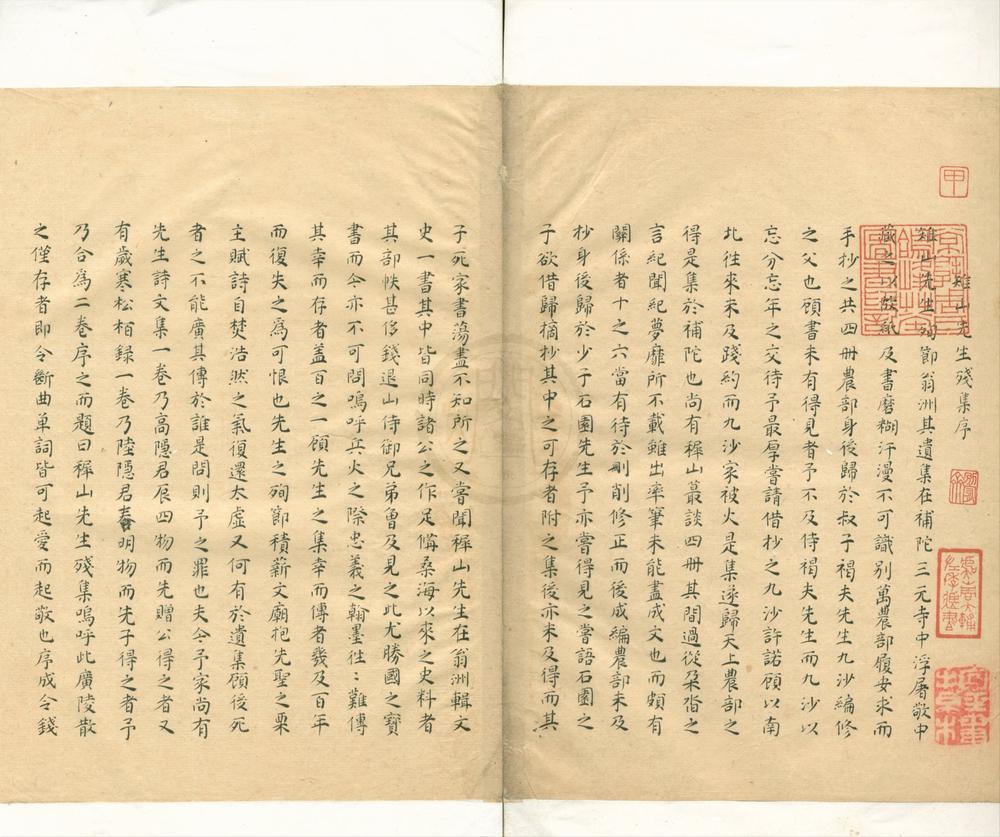 雉山先生殘集序
雉山先生殉節翁洲其遺集在補陀三元寺中浮屠敬中
藏之以故紙及書磨糊汗漫不可識别萬農部履安求而
手抄之共四册農部身後歸於叔子褐夫先生九沙編修
之父也顧書未有得見者予不及侍褐夫先生而九沙以
忘分忘年之交待予最厚嘗請借抄之九沙許諾顧以南
北往來未及踐約而九沙家被火是集遂歸天上農部之
得是集於補陀也尚有樨山蕞談四册其間過從朶沓之
言紀聞紀夢靡所不載雖出率筆未能盡成文也而頗有
關係者十之六當有待於刪削修正而後成編農部未及
抄身後歸於少子石園先生予亦嘗得見之嘗語石園之
子欲借歸摘抄其中之可存者附之集後亦未及得而其
子死家書蕩盡不知所之又嘗聞樨山先生在翁洲輯文
史一書其中皆同時諸公之作足備桑海以來之史料者
其部帙甚侈錢退山侍御兄弟曾及見之此尤勝國之寶
書而今亦不可問嗚呼兵火之際忠義之翰墨往〻難傳
其幸而存者盖百之一顧先生之集幸而傳者幾及百年
而復失之爲可恨也先生之殉節積薪文廟抱先聖之栗
主賦詩自焚浩然之氣復還太虛又何有於遺集顧後死
者之不能廣其傳於誰是問則予之罪也夫今予家尚有
先生詩文集一卷乃高隱君辰四物而先贈公得之者又
有歲寒松栢録一卷乃陸隱君春明物而先子得之者予
乃合爲二卷序之而題曰樨山先生殘集嗚呼此廣陵散
之僅存者即令斷曲单詞皆可起愛而起敬也序成令錢
甲